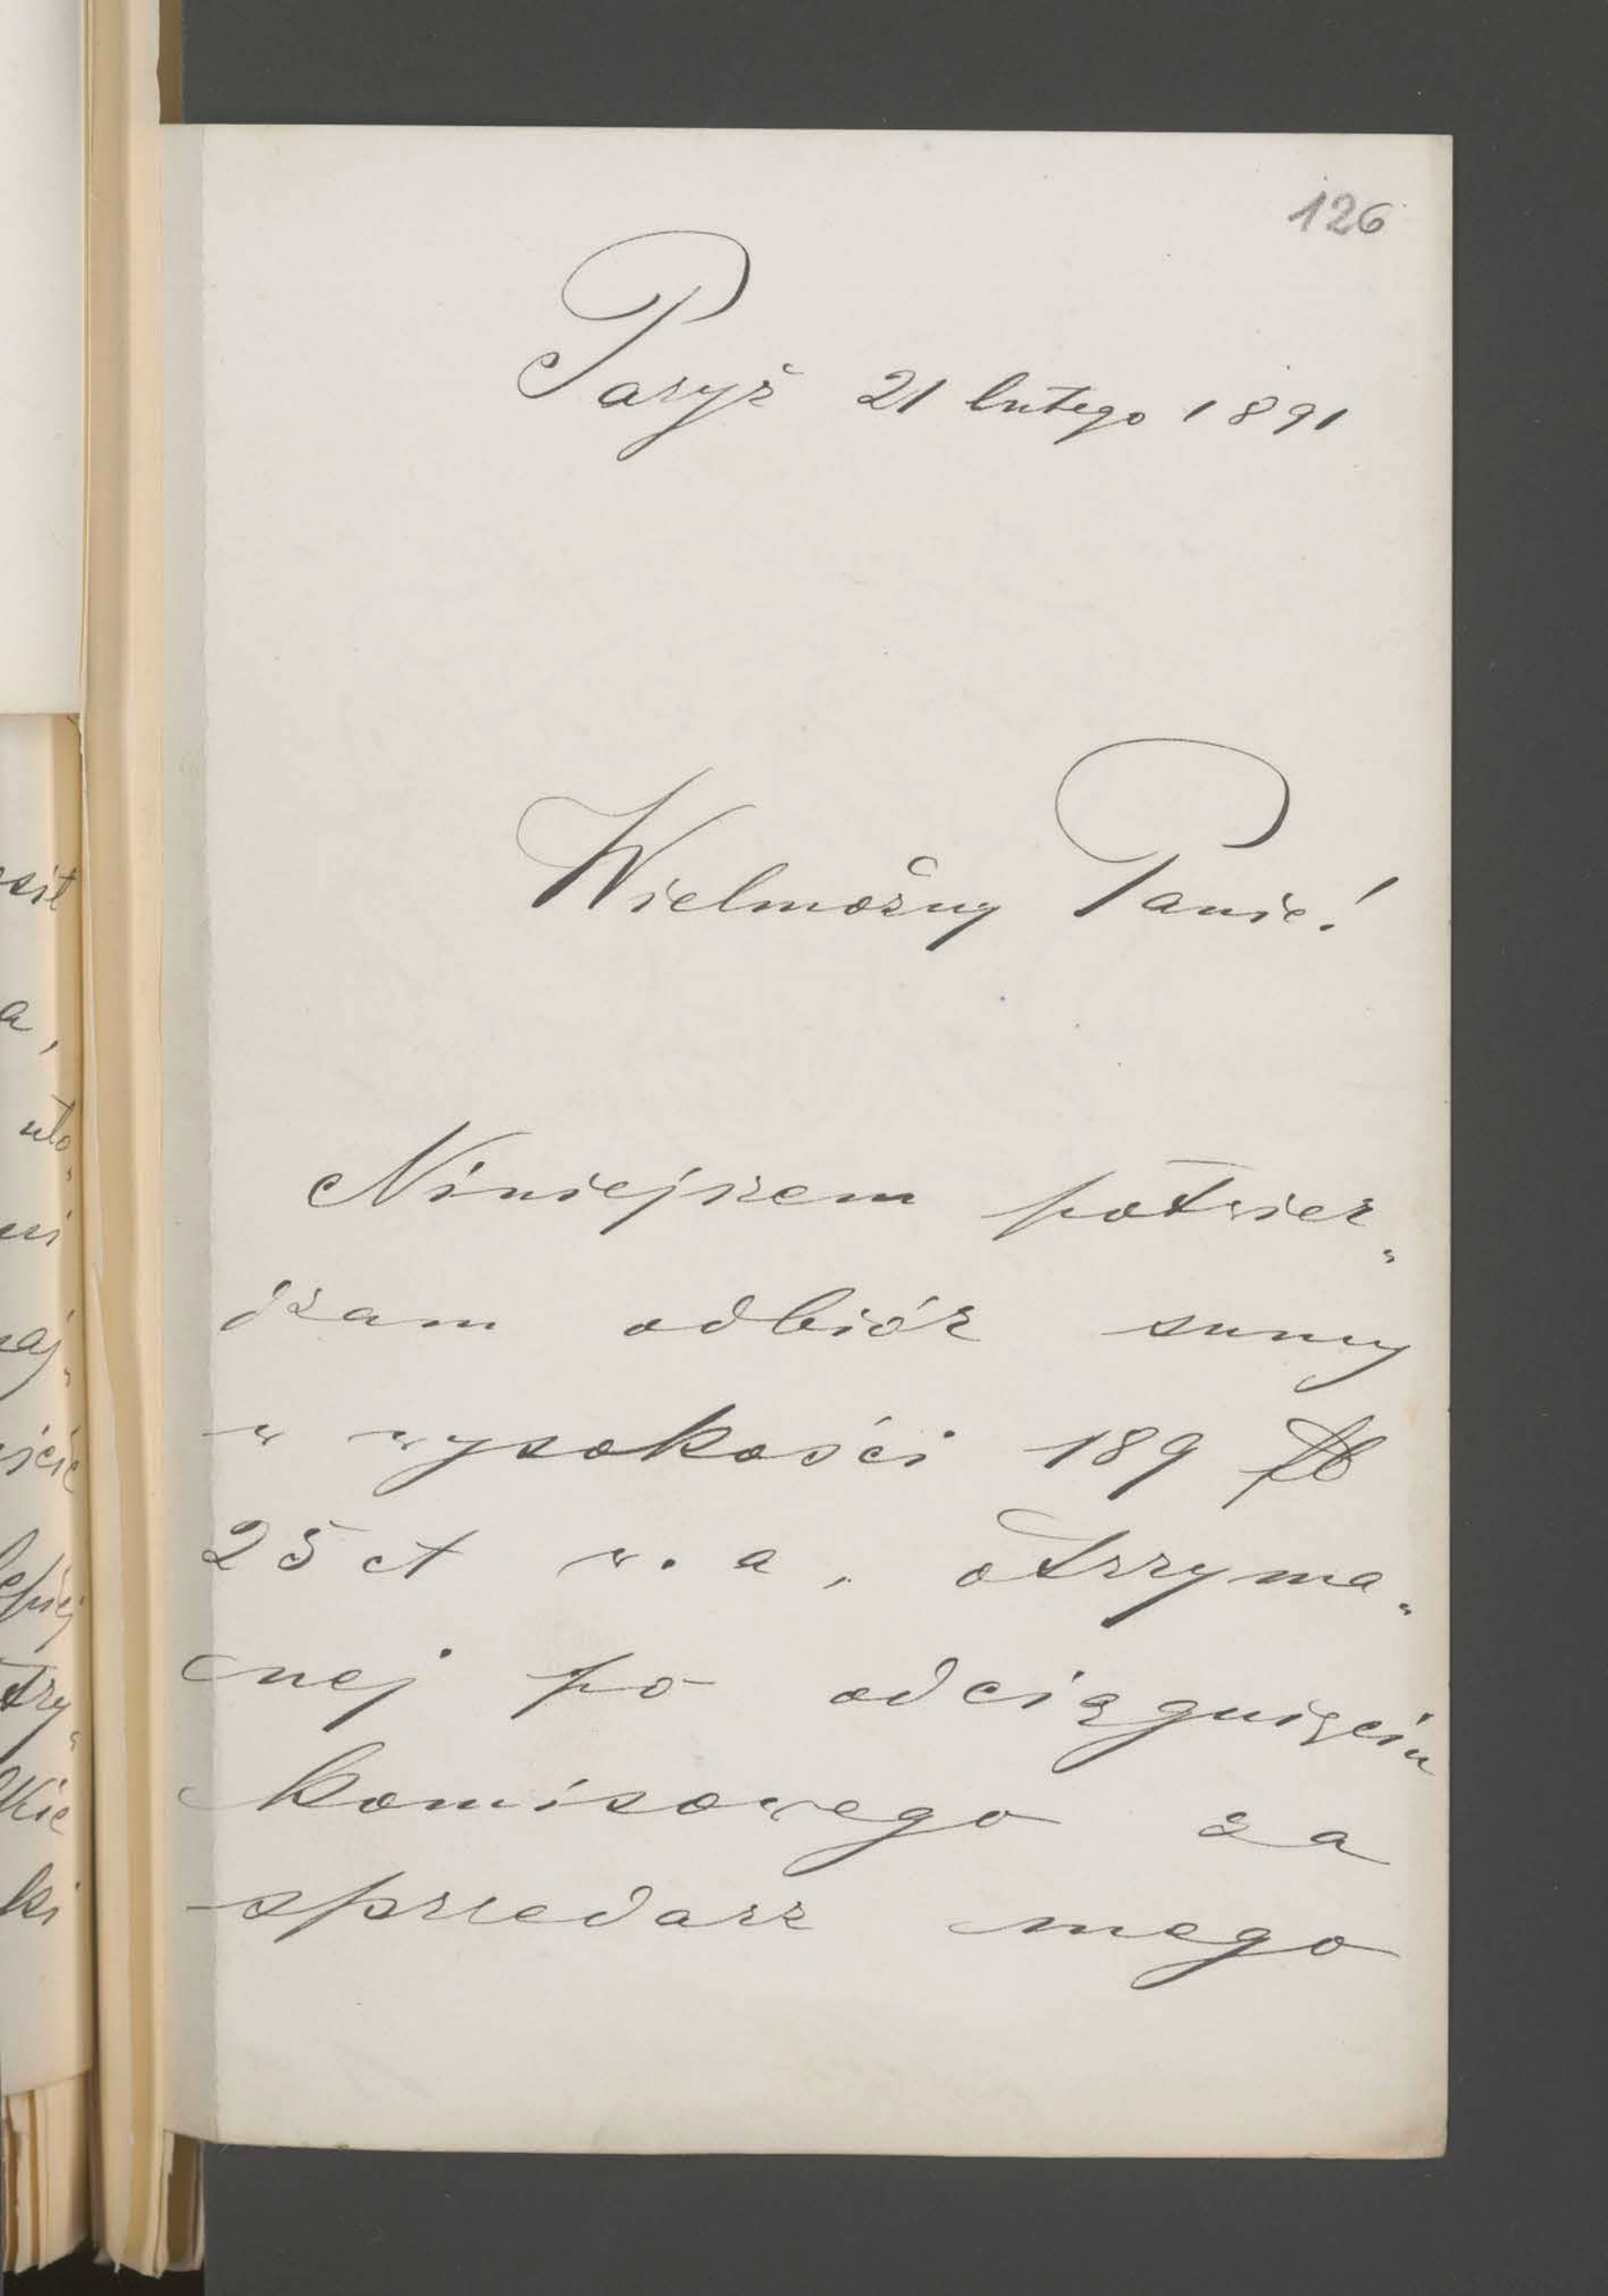 126
Paryż 21 lutego 1891
Wielmożny Panie!
Niniejszem potwier„
dzam odbiór sumy
w wysokości 189
25 ct w. a. otrzyma„
nej po odciągnięciu
komisowego za
sprzedarz mego